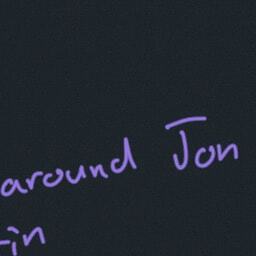 around Jon
in